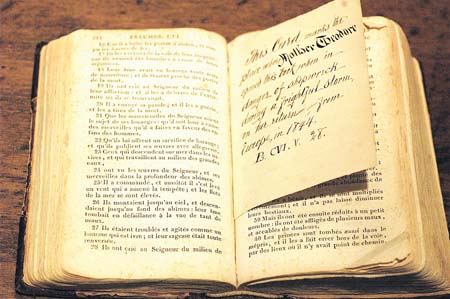 PSAUMES, CVI
16 Car il a brisé les portes d'airain, et rom-
18 Leur âme avait en horreur toute sorte
de nourriture; et ils étaient proche des portes
de la mort.
19 Ils ont crié au Seigneur du milieu de
leur affliction; et il les a délivrés de
20 Il a envoyé sa parole; et il les a guéris,
et les a tirés de la mort.
21 Que les miséricordes du Seigneur soient
le sujet de ses louanges; qu'il soit loué des
merveilles qu'il a faites en faveur des enfans
des hommes.
22 Qu'ils lui offrent un sacrifice de louange,
et qu'ils publient ses œuvres avec allégresse.
23 Ceux qui descendent sur mer dans les na-
vires, et qui travaillent au milieu des grandes
eaux,
24 ont vu les œuvres du Seigneur, et ses
merveilles dans la profondeur des abîmes.
25 Il a commandé, et aussitôt il s'est levé
un vent qui a amené la tempête; et les flots
de la mer se sont élevés.
26 Ils montaient jusqu'au ciel, et descen-
daient jusqu'au fond des abîmes; leur âme
tombait en défaillance à la vue de tant de
maux.
27 Ils étaient troublés et agités comme un
homme qui est ivre; et leur sagesse était toute
renversée.
28 Ils ont crié au Seigneur du milieu de
This Card marks the
place where Mother Theodore
opened this book when in
danger of shipwreck
during a frightful storm,
on her return from
Europe, in 1844.
B. CVI. V. 28.
sont multipliés
et il n'a pas laissé diminuer
leurs bestiaux.
39 Mais ils ont ensuite été réduits à un petit
nombre, et ont été affligés de plusieurs maux,
et accablés de douleurs.
40 Les princes sont tombés aussi dans le
mépris, et il les a fait errer hors de la voie,
par des lieux où il n'y avait point de chemin